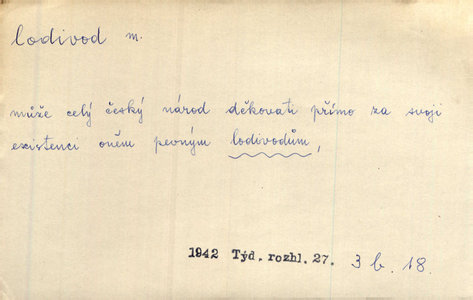 lodivod m.
může celý český národ děkovati přímo za svoji
existenci oněm pevným lodivodům,
1942 Týd. rozhl. 27. 3 b. 18.